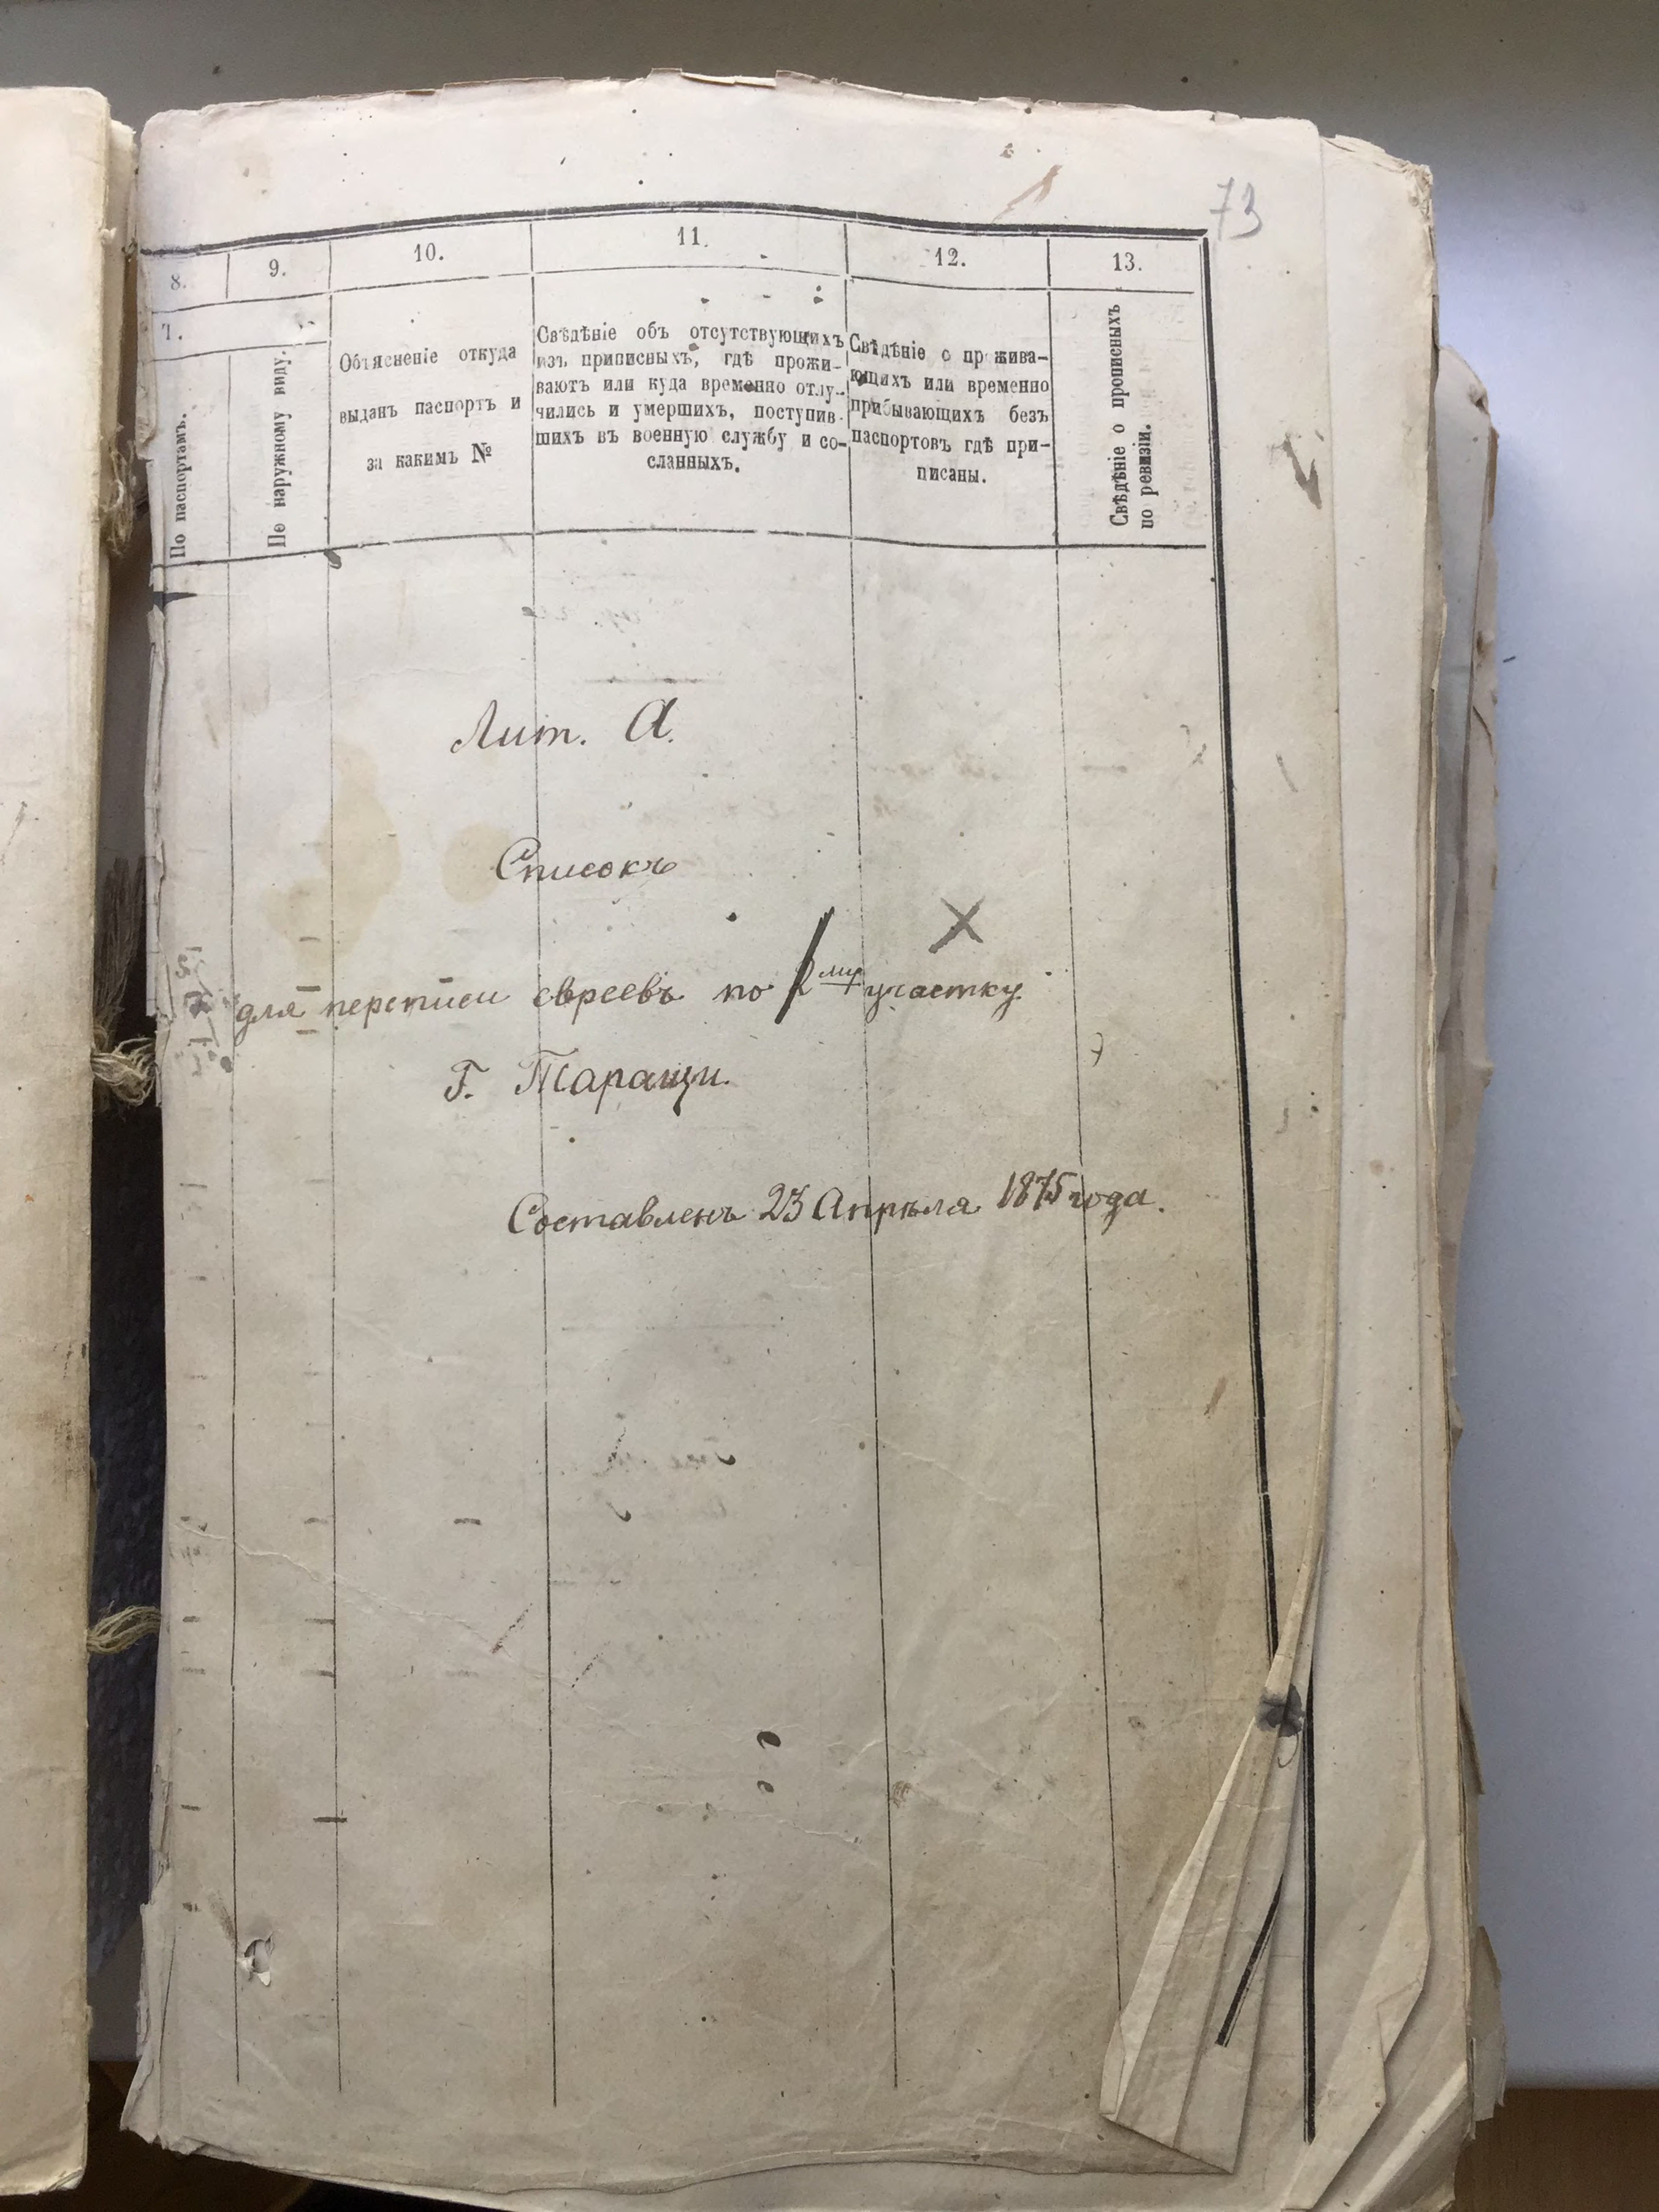 73
8.
9.
10.
11.
12.
13.
7.
По паспортамъ.
По наружному виду.
Объясненіе откуда
выданъ паспортъ и
за какимъ №
Свѣдѣніе объ отсутствующихъ
изъ приписныхъ, гдѣ прожи-
ваютъ или куда временно отлу-
чились и умершихъ, поступив-
шихъ въ военную службу и со-
сланныхъ.
Свѣдѣніе о прожива-
ющихъ или временно
прибывающихъ безъ
паспортовъ гдѣ при-
писаны.
Свѣдѣніе о прописныхъ
по ревизіи.
Лит. А.
Списокъ
для переписи евреевъ по участку
Г. Таращи.
Составленъ 23 Апрѣля 1875 года.